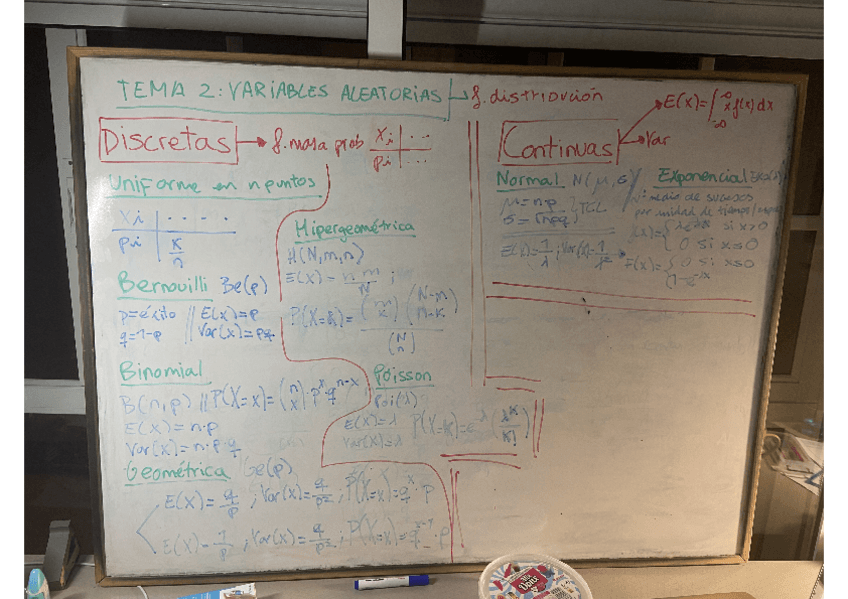 TEMA 2: VARIABLES ALEATORIAS → f. distribución
Discretas → f. masa prob
Xi | ...
pi | ...
Uniforme en n puntos
Xi | . . . .
pi | K/n
Bernouilli Be(p)
p=éxito // E(x)=p
q=1-p Var(x)=pq
Binomial
B(n,p) // P(X=x)=(n x)·p^x·q^n-x
E(x)=n·p
Var(x)=n·p·q
Geométrica Ge(p)
E(X)=q/p ; Var(x)=q/p² ; P(X=x)=q^x·p
E(X)=1/p ; Var(x)=q/p² ; P(X=x)=q^x-1·p
Hipergeométrica
H(N,m,n)
E(x)=n·m/N ;
P(X=k)=(m k)(N-m n-k)/(N n)
Poisson
Poi(λ)
E(x)=λ
Var(x)=λ
P(X=k)=e^-λ(λ^k/k!)
Continuas → E(x)=∫_-∞^∞ x f(x) dx
→ Var
Normal N(μ,σ)
μ=n·p
σ=√npq } TCL
E(x)=1/λ ; Var(x)=1/λ²
Exponencial Exp(λ)
λ: media de sucesos
por unidad de tiempo/
f(x)={λe^-λx si x>0
0 si x≤0
F(x)={0 si x≤0
1-e^-λx